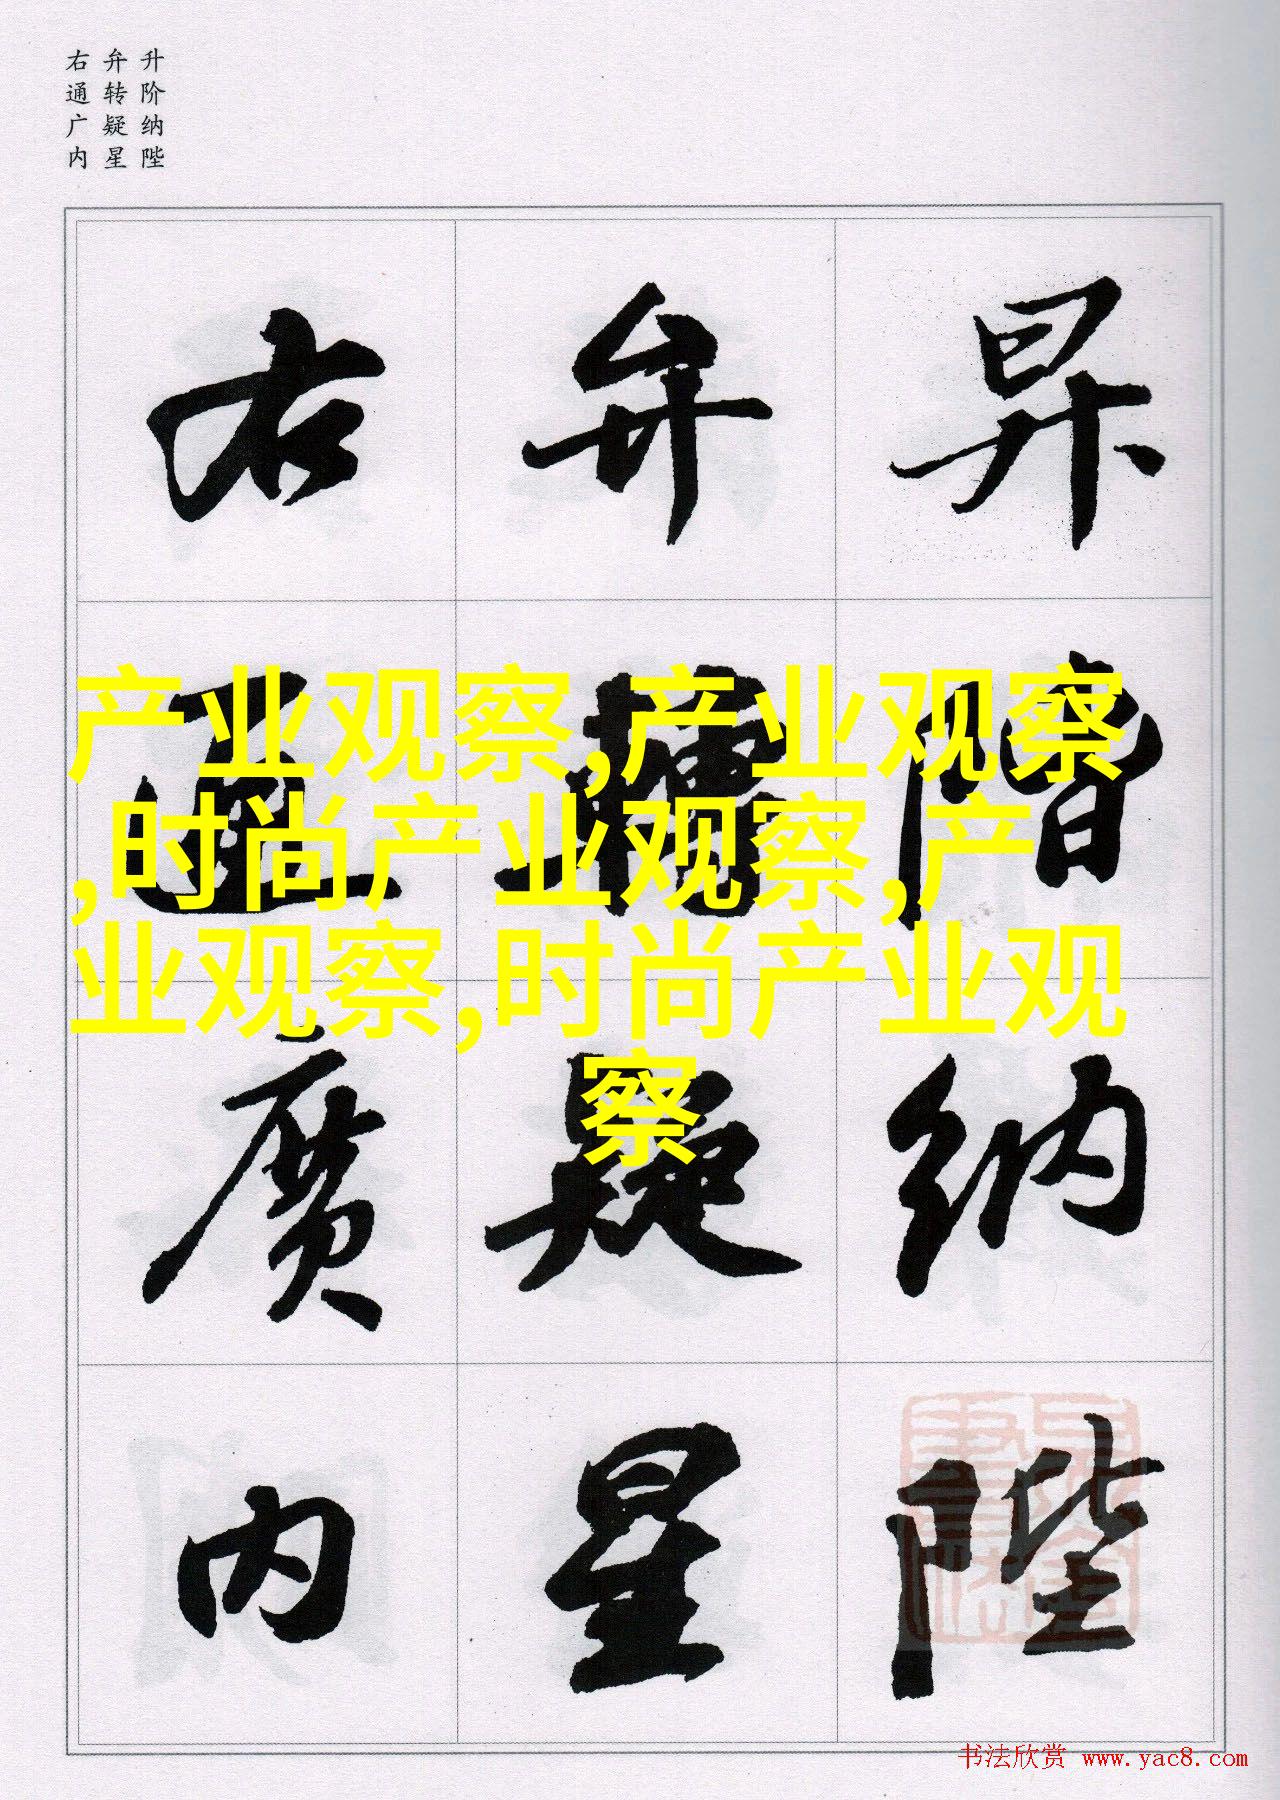 升阶纳陛
弁转疑星
右通广内
昇階納陛
弁轉疑星
右通廣内
产业观察,产业观察
,时尚产业观察,产
业观察,时尚产业观
察
书法欣赏 www.yac8.com